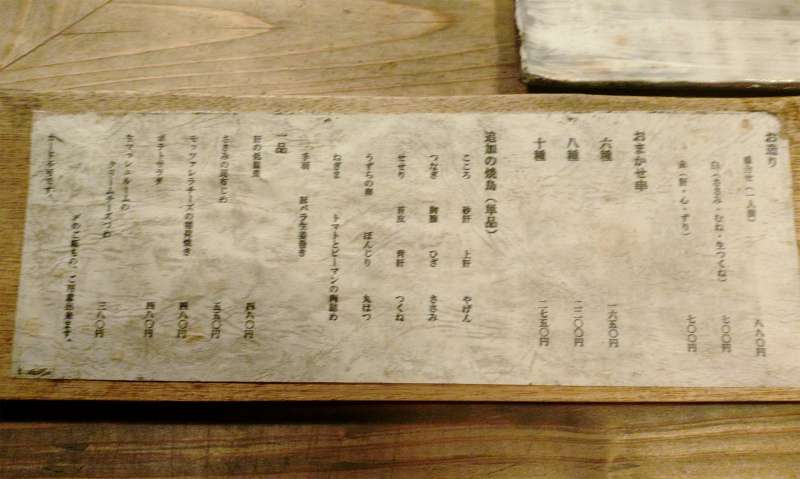 お造り
盛合せ(一人前) 八八〇円
白(ささみ・むね・生つくね) 七〇〇円
赤(肝・心・ずり) 七〇〇円
おまかせ串
六種 一六五〇円
八種 二二〇〇円
十種 二七五〇円
追加の焼鳥(単品)
こころ 砂肝 上肝 やげん
つなぎ 胸腺 ひざ ささみ
せせり 首皮 背肝 つくね
うずらの卵 ぼんじり 丸はつ
ねぎま トマトとピーマンの肉詰め
手羽 豚バラ生姜巻き
一品
肝の低温煮 四八〇円
ささみの昆布じめ 五五〇円
モッツァレラチーズの茗荷焼き 四八〇円
ポテトサラダ 四八〇円
生マッシュルームの
クリームチーズづめ 三八〇円
〆のご飯もの、ご用意出来ます。
カード不可です。